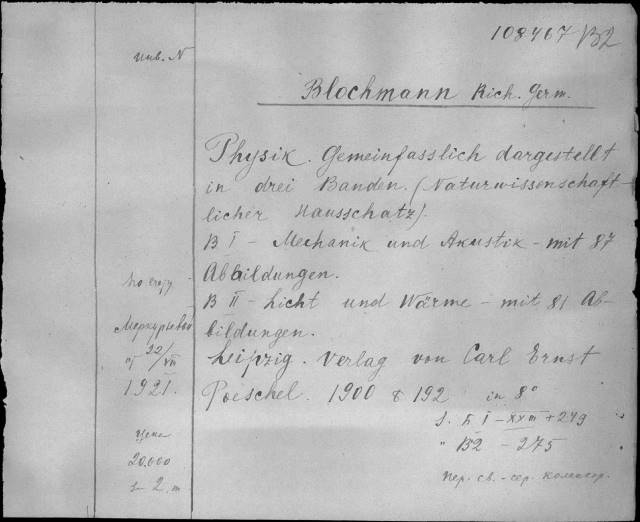 108467 B2
Инв. N
Blochmann Rich. Germ.
Physik. Gemeinfasslich dargestellt
in drei Banden. (Naturwissenschaft-
licher Hausschatz).
B I – Mechanik und Akustik – mit 87
Abbildungen.
B II – Licht und Wärme – mit 81 Ab-
bildungen.
Leipzig. Verlag von Carl Ernst
Poeschel. 1900 & 192 in 8°
S. B I – XXIII + 249
" B2 – 275
пер. св.-сер. коленкор.
По счету
Меркурьевой
от 22/VII
1921.
Цена
20.000
за 2 т